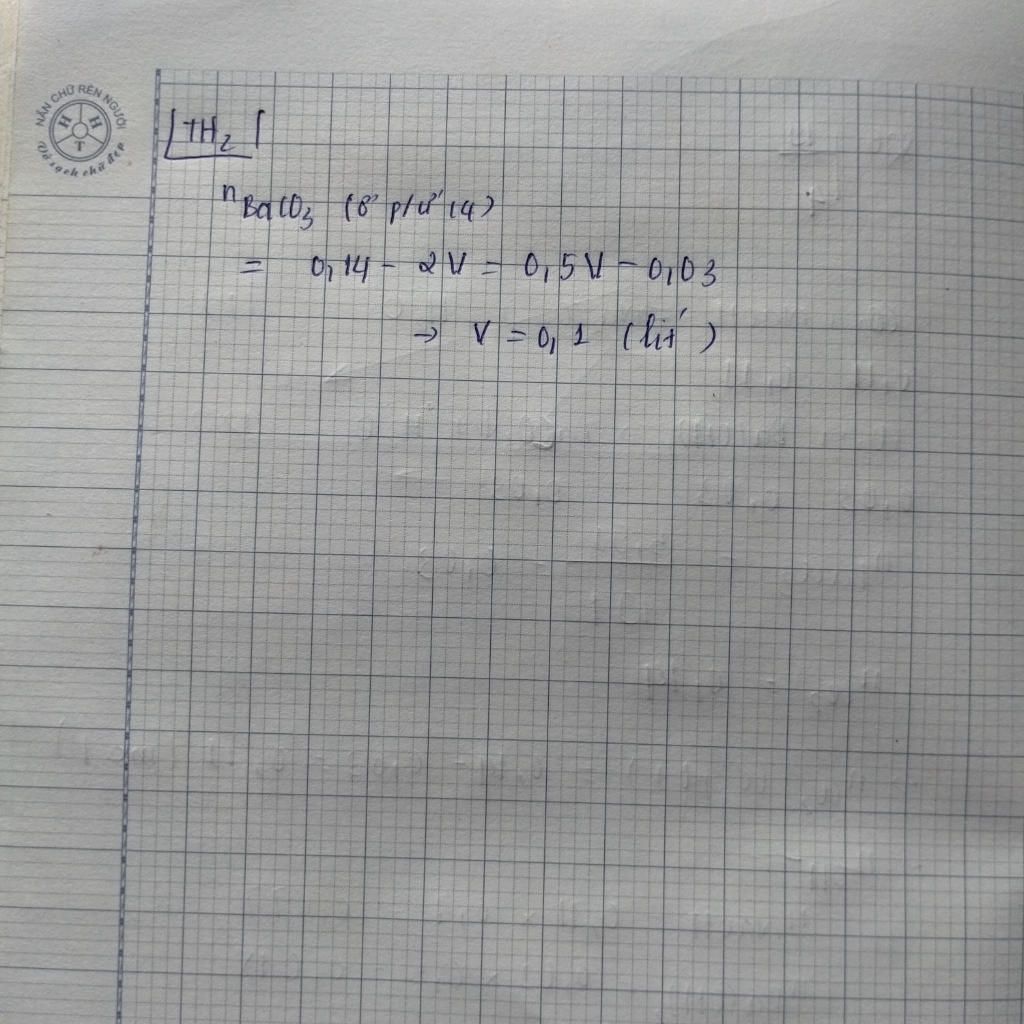 NẮN CHỮ RÈN NGƯỜI
H H T
Vở sạch chữ đẹp
TH2
nBaCO3 (ở p/ứ (4)
= 0,14 - 2V = 0,5V - 0,03
→ V = 0,1 (lít)